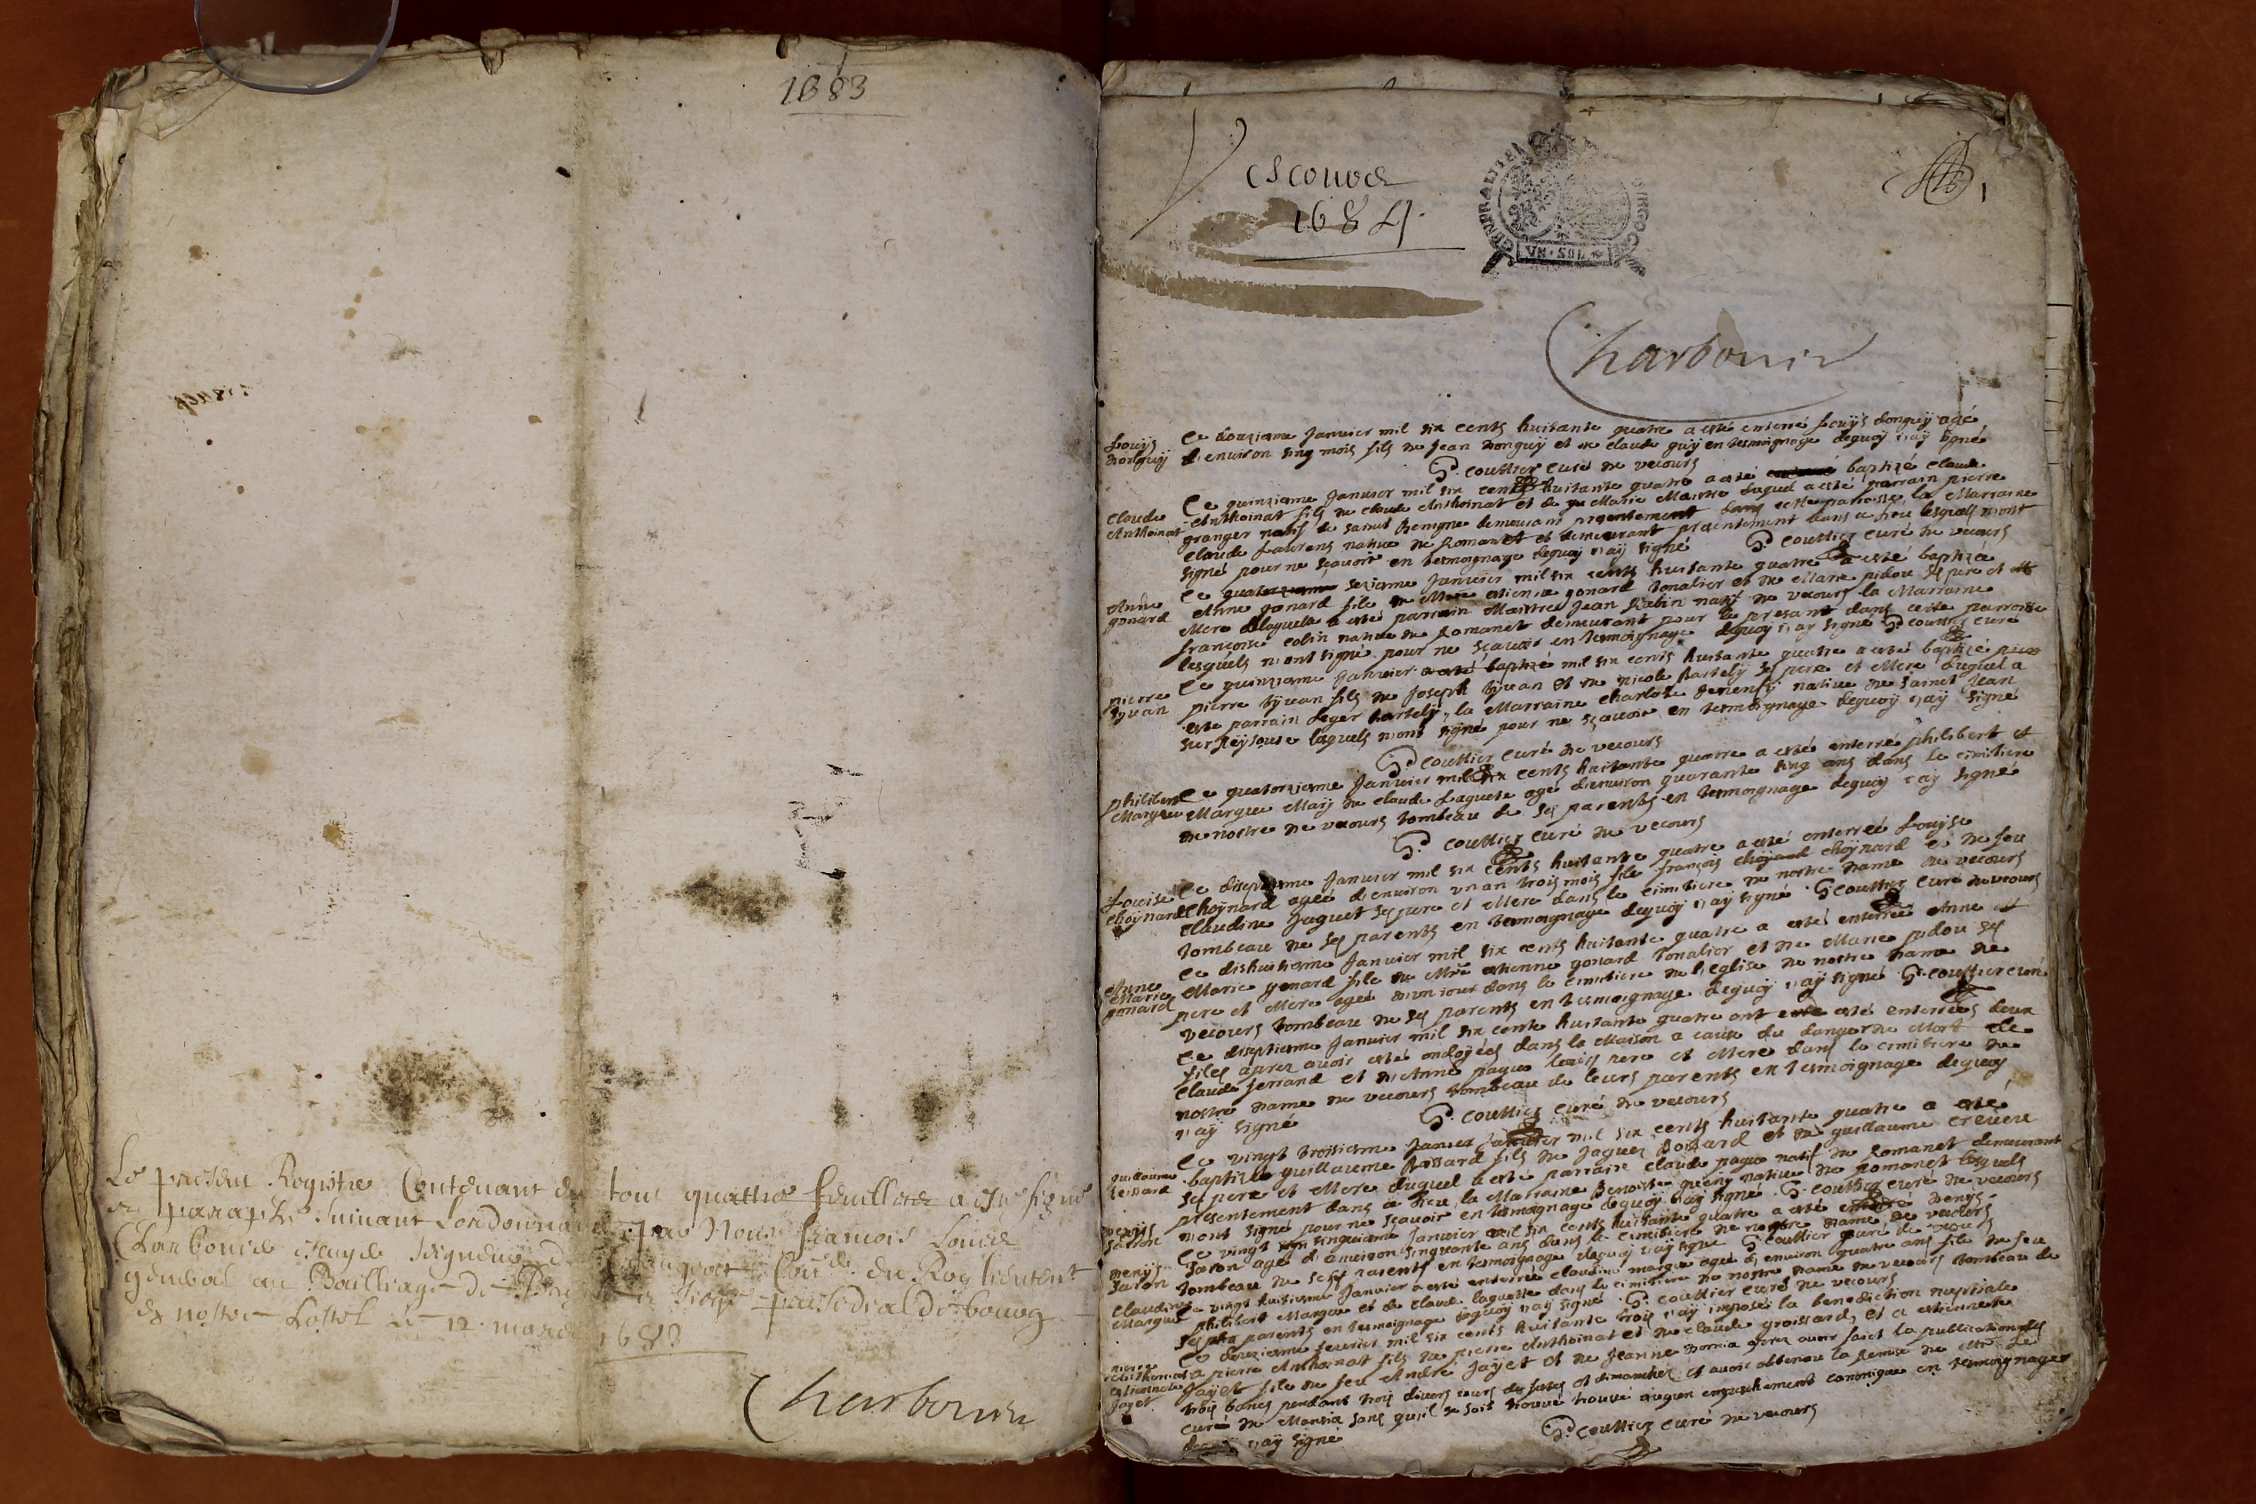 1683
Le present Registre Contenant en tout quattre feuillets a esté signé
et paraphé suivant Lordonnance par Nous francois Louis
Charbonier Escuyer Seigneur de Con.er du Roy lieutent
general au Bailliage de et siege presidial de bourg
en nostre hostel le 12 mars 1683
Charbonier
Vescours
1684
GENERALITE BOURGOGNE
VN·SOL
1
Charbonier
Louÿs
donguÿ
Le douziesme Janvier mil six cents huitante quatre a esté enterré Louÿs donguÿ agé
d'environ sinq mois fils de Jean donguÿ et de claude guÿ en tesmoignage dequoÿ j'aÿ signé
couttier curé de vecours
Claude
Anthoinat
Le quinziesme Janvier mil six cents huitante quatre a esté baptizé claude
Anthoinat fils de claude Anthoinat et de Marie Maistre duquel a esté parrain pierre
granger natif de saint Benigne demeurant presentement dans cette parroisse la Marraine
claude Laurens native de Romanet et demeurant presentement dans a lieu lesquels n'ont
signé pour ne sçavoir en tesmoignage dequoÿ j'aÿ signé couttier curé de vecours
Anne
gonard
Le seziesme Janvier mil six cents huitante quatre a esté baptizée
Anne gonard file de Mre estienne gonard tonalier et de Marie pidou ses pere et
Mere de laquelle a esté parrain Maistre Jean natif de vecours la Marraine
françoise colin native de Romanet demeurant pour le presant dans cette parroisse
lesquels n'ont signé pour ne sçavoir en tesmoignage dequoÿ j'aÿ signé couttier curé
pierre
Le quinziesme Janvier mil six cents huitante quatre a esté baptizé
pierre fils de Joseph et de nicole ses pere et Mere duquel a
esté parrain Leger la Marraine charlote native de saint Jean
sur Reÿsouse lesquels n'ont signé pour ne sçavoir en tesmoignage dequoÿ j'aÿ signé
couttier curé de vecours
philibert
Margue
Le quatorziesme Janvier mil six cents huitante quatre a esté enterré philibert
Margue Marÿ de claude Laguete agé d'environ quarante sinq ans dans le cimitiere
de nostre de vecours tombeau de ses parents en tesmoignage dequoÿ j'aÿ signé
couttier curé de vecours
Louise
choÿnard
Le diseptiesme Janvier mil six cents huitante quatre a esté enterreé Louÿse
choÿnard ageé d'environ un an trois mois file françois choÿnard et de feu
claudine Juguet ses pere et Mere dans le cimitiere de nostre dame de vecours
tombeau de ses parents en tesmoignage dequoÿ j'aÿ signé couttier curé de vecours
Anne
Marie
gonard
Le dishuitiesme Janvier mil six cents huitante quatre a esté enterrée Anne
Marie gonard file de Mre estienne gonard tonalier et de Marie pidou ses
pere et Mere ageé d'un iour dans le cimitiere de l'eglise de nostre dame de
vecours tombeau de ses parents en tesmoignage dequoÿ j'aÿ signé couttier curé
Le diseptiesme Janvier mil six cents huitante quatre ont esté enterreés deux
files aprez avoir esté ondoÿeés dans la Maison a cause du danger de Mort de
claude ferrand et d'Anne pague leurs pere et Mere dans le cimitiere de
nostre dame de vecours tombeau de leurs parents en tesmoignage dequoy
j'aÿ signé couttier curé de vecours
guillaume
Le vingt troisiesme Janvier mil six cents huitante quatre a esté
baptizé guillaume fils de Jaques et de guillauma creuere
ses pere et Mere duquel a esté parrain claude pague natif de Romanet demeurant
presentement dans a lieu la Marraine Benoiste native de Romanet lesquels
n'ont signé pour ne sçavoir en tesmoignage dequoÿ j'aÿ signé couttier curé de vecours
Denÿs
Le vingt sinquiesme Janvier mil six cents huitante quatre a esté enterré Denÿs
agé d'environ sinquante ans dans le cimitiere de nostre dame de vecours
tombeau de ses parents en tesmoignage dequoÿ j'aÿ signé couttier curé de vecours
Claudine
Margue
Le vingt huitiesme Janvier a esté enterreé claudine margue ageé d'environ quatre ans file de feu
philibert Margue et de claude laguette dans le cimitiere de nostre dame de vecours tombeau de
ses parents en tesmoignage dequoÿ j'aÿ signé couttier curé de vecours
pierre
Anthoinat
estiennete
Jaÿet
Le douziesme fevrier mil six cents huitante trois j'aÿ imposé la benediction nuptiale
a pierre Anthoinat fils de pierre Anthoinat et de claude groissard, et a estiennete
Jaÿet file de feu André Jaÿet et de Jeanne aprez avoir faict la publication des
trois bancs pendant trois divers iours de festes et dimanches et avoir obtenu la remise de Mr le
curé de Mantia sans qu'il se soit trouvé aucun empeschement canonique en tesmoignage
dequoÿ j'aÿ signé couttier curé de vecours